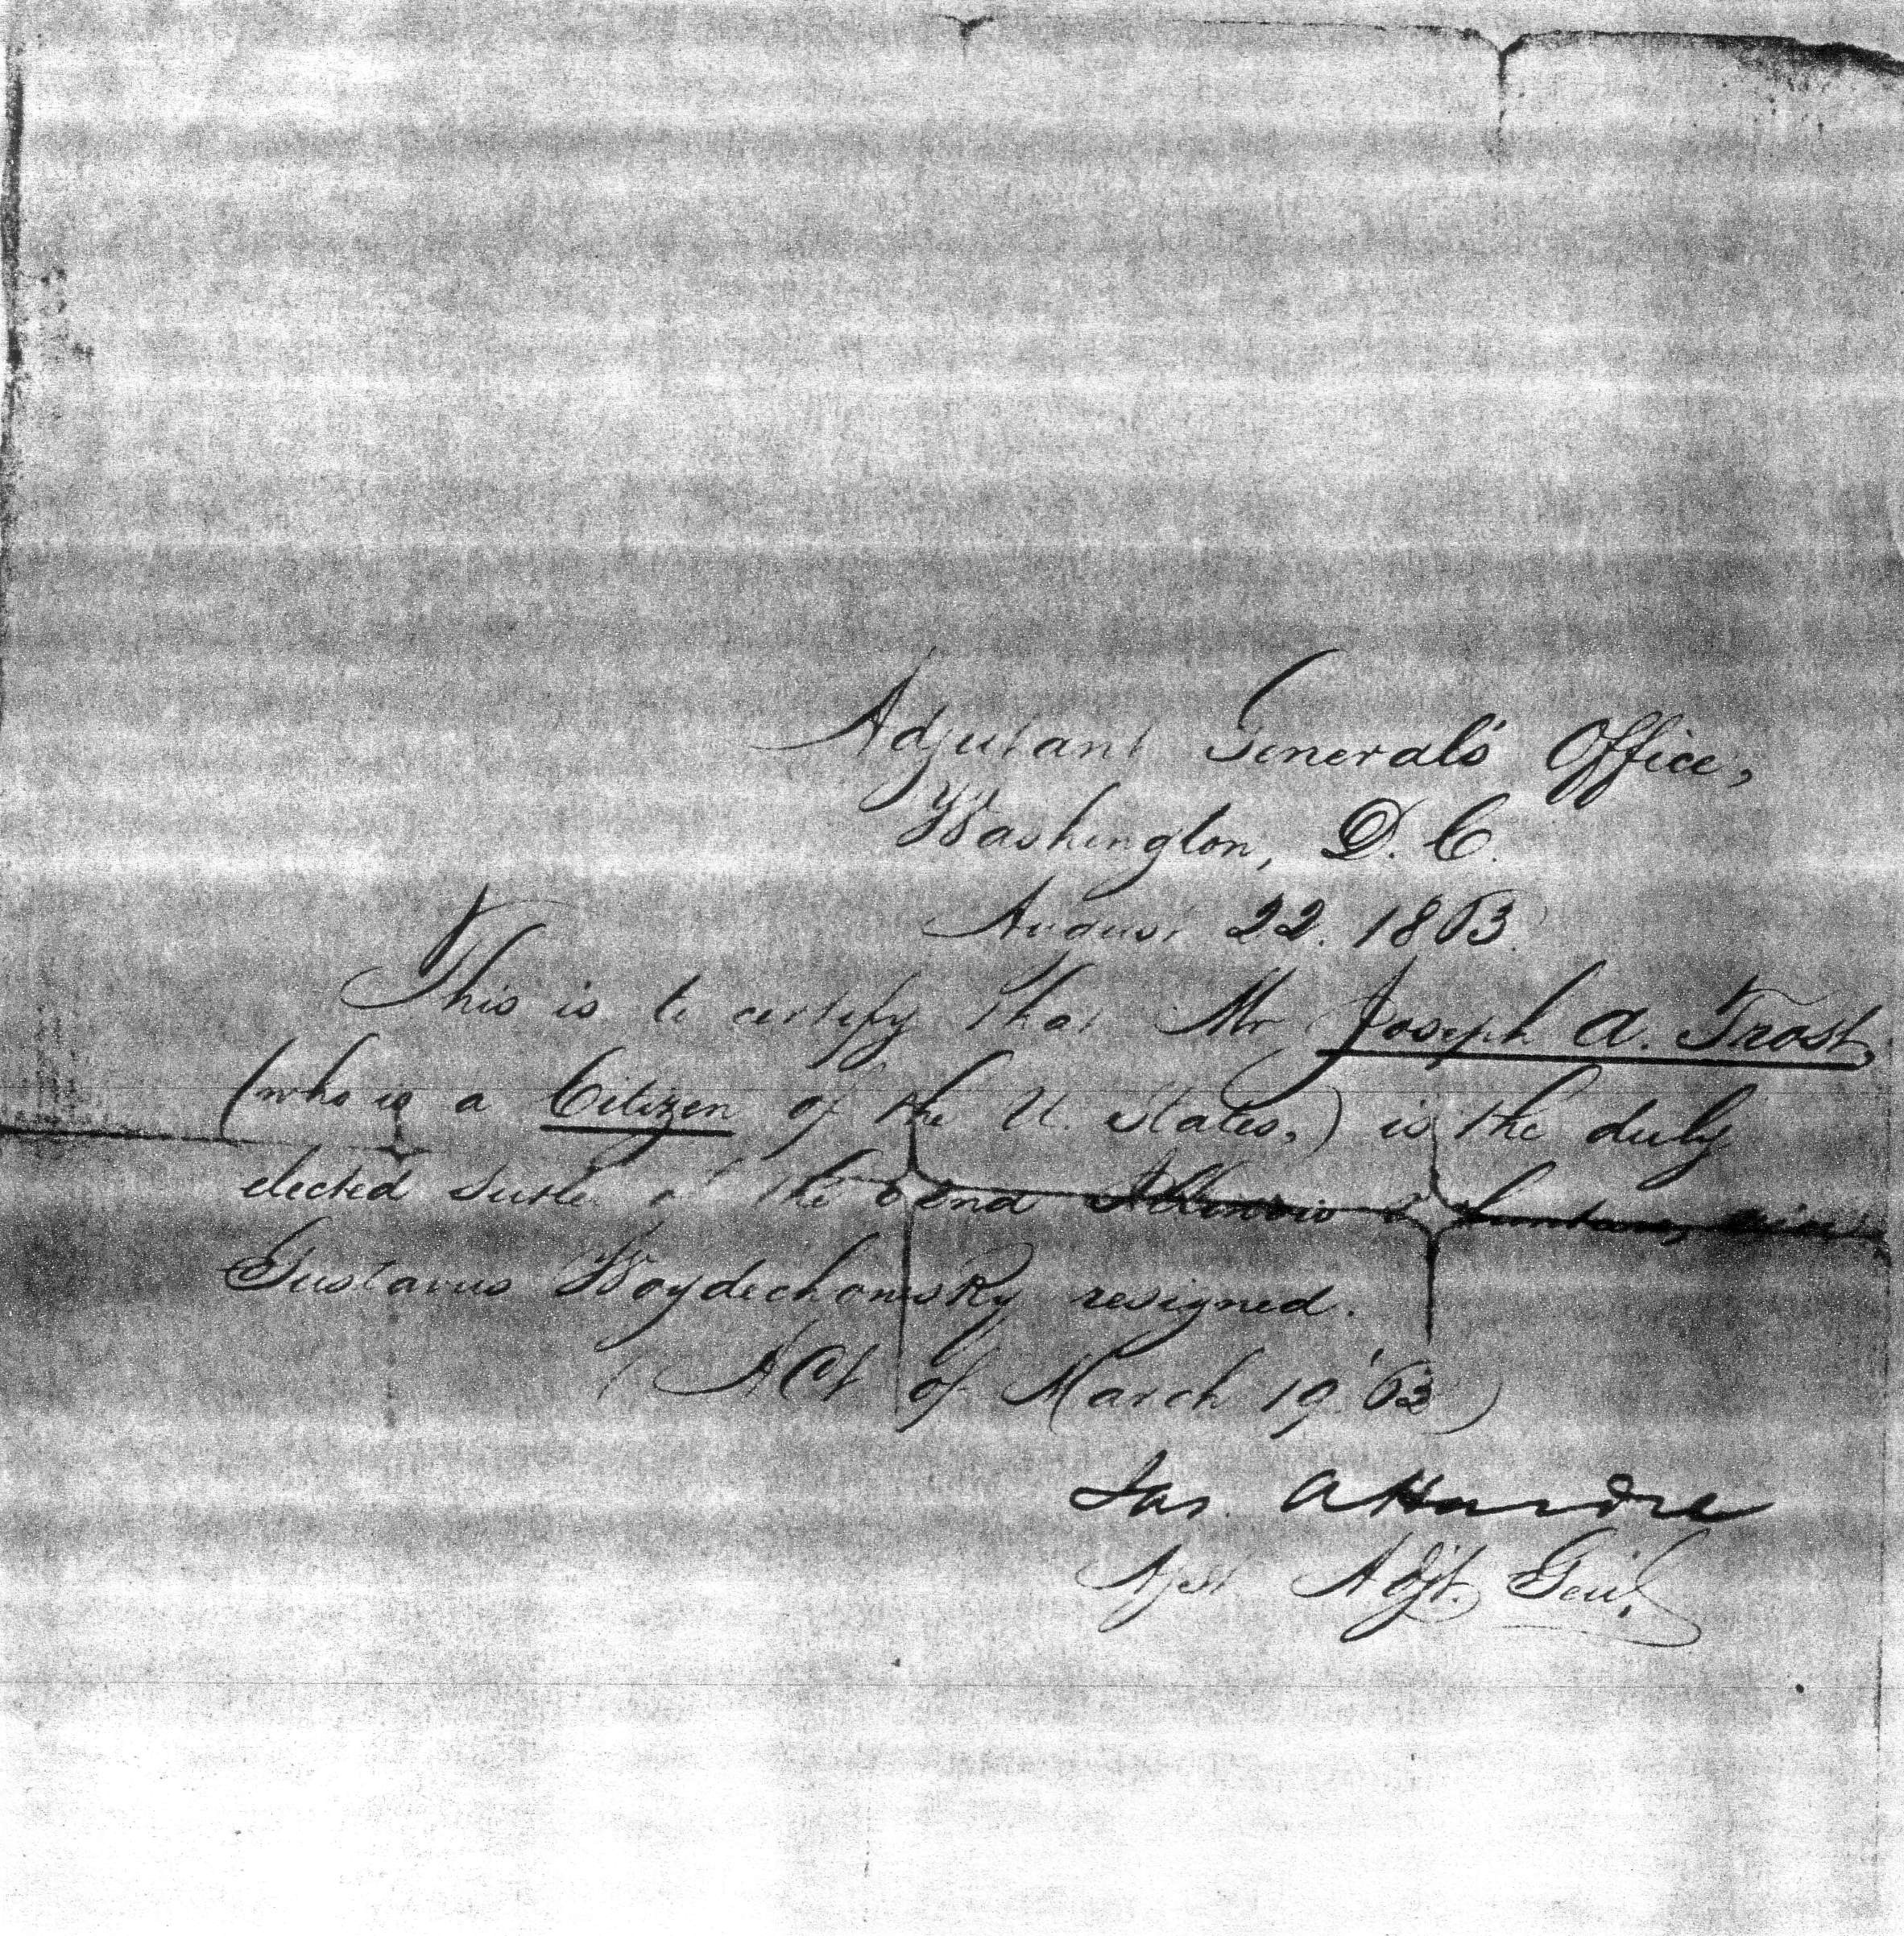 Adjutant General's Office,
Washington, D. C.
August 22. 1863.
This is to certify that Mr Joseph A. Trost,
(who is a Citizen of the U. States,) is the duly
elected Sutler of the 82nd Illinois Volunteers, vice
Gustavus Woydechowsky resigned.
(Act of March 19. '62)
Jas. A Hardie
Asst Adjt. Genl.